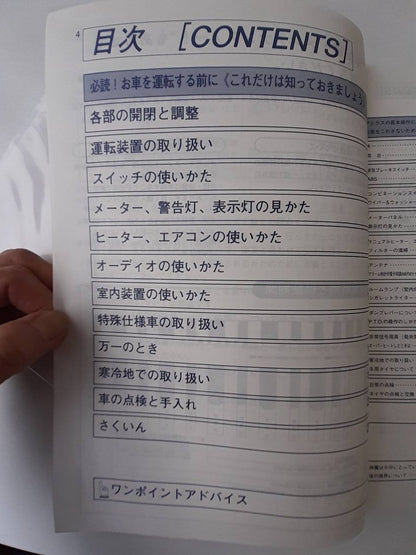 4
目次 [CONTENTS]
必読！お車を運転する前に《これだけは知っておきましょう
各部の開閉と調整
運転装置の取り扱い
スイッチの使いかた
メーター、警告灯、表示灯の見かた
ヒーター、エアコンの使いかた
オーディオの使いかた
室内装置の使いかた
特殊仕様車の取り扱い
万一のとき
寒冷地での取り扱い
車の点検と手入れ
さくいん
ワンポイントアドバイス
メーターパネル
表示灯の見かた
アンテナ
寒冷地の取り扱い
日常の点検